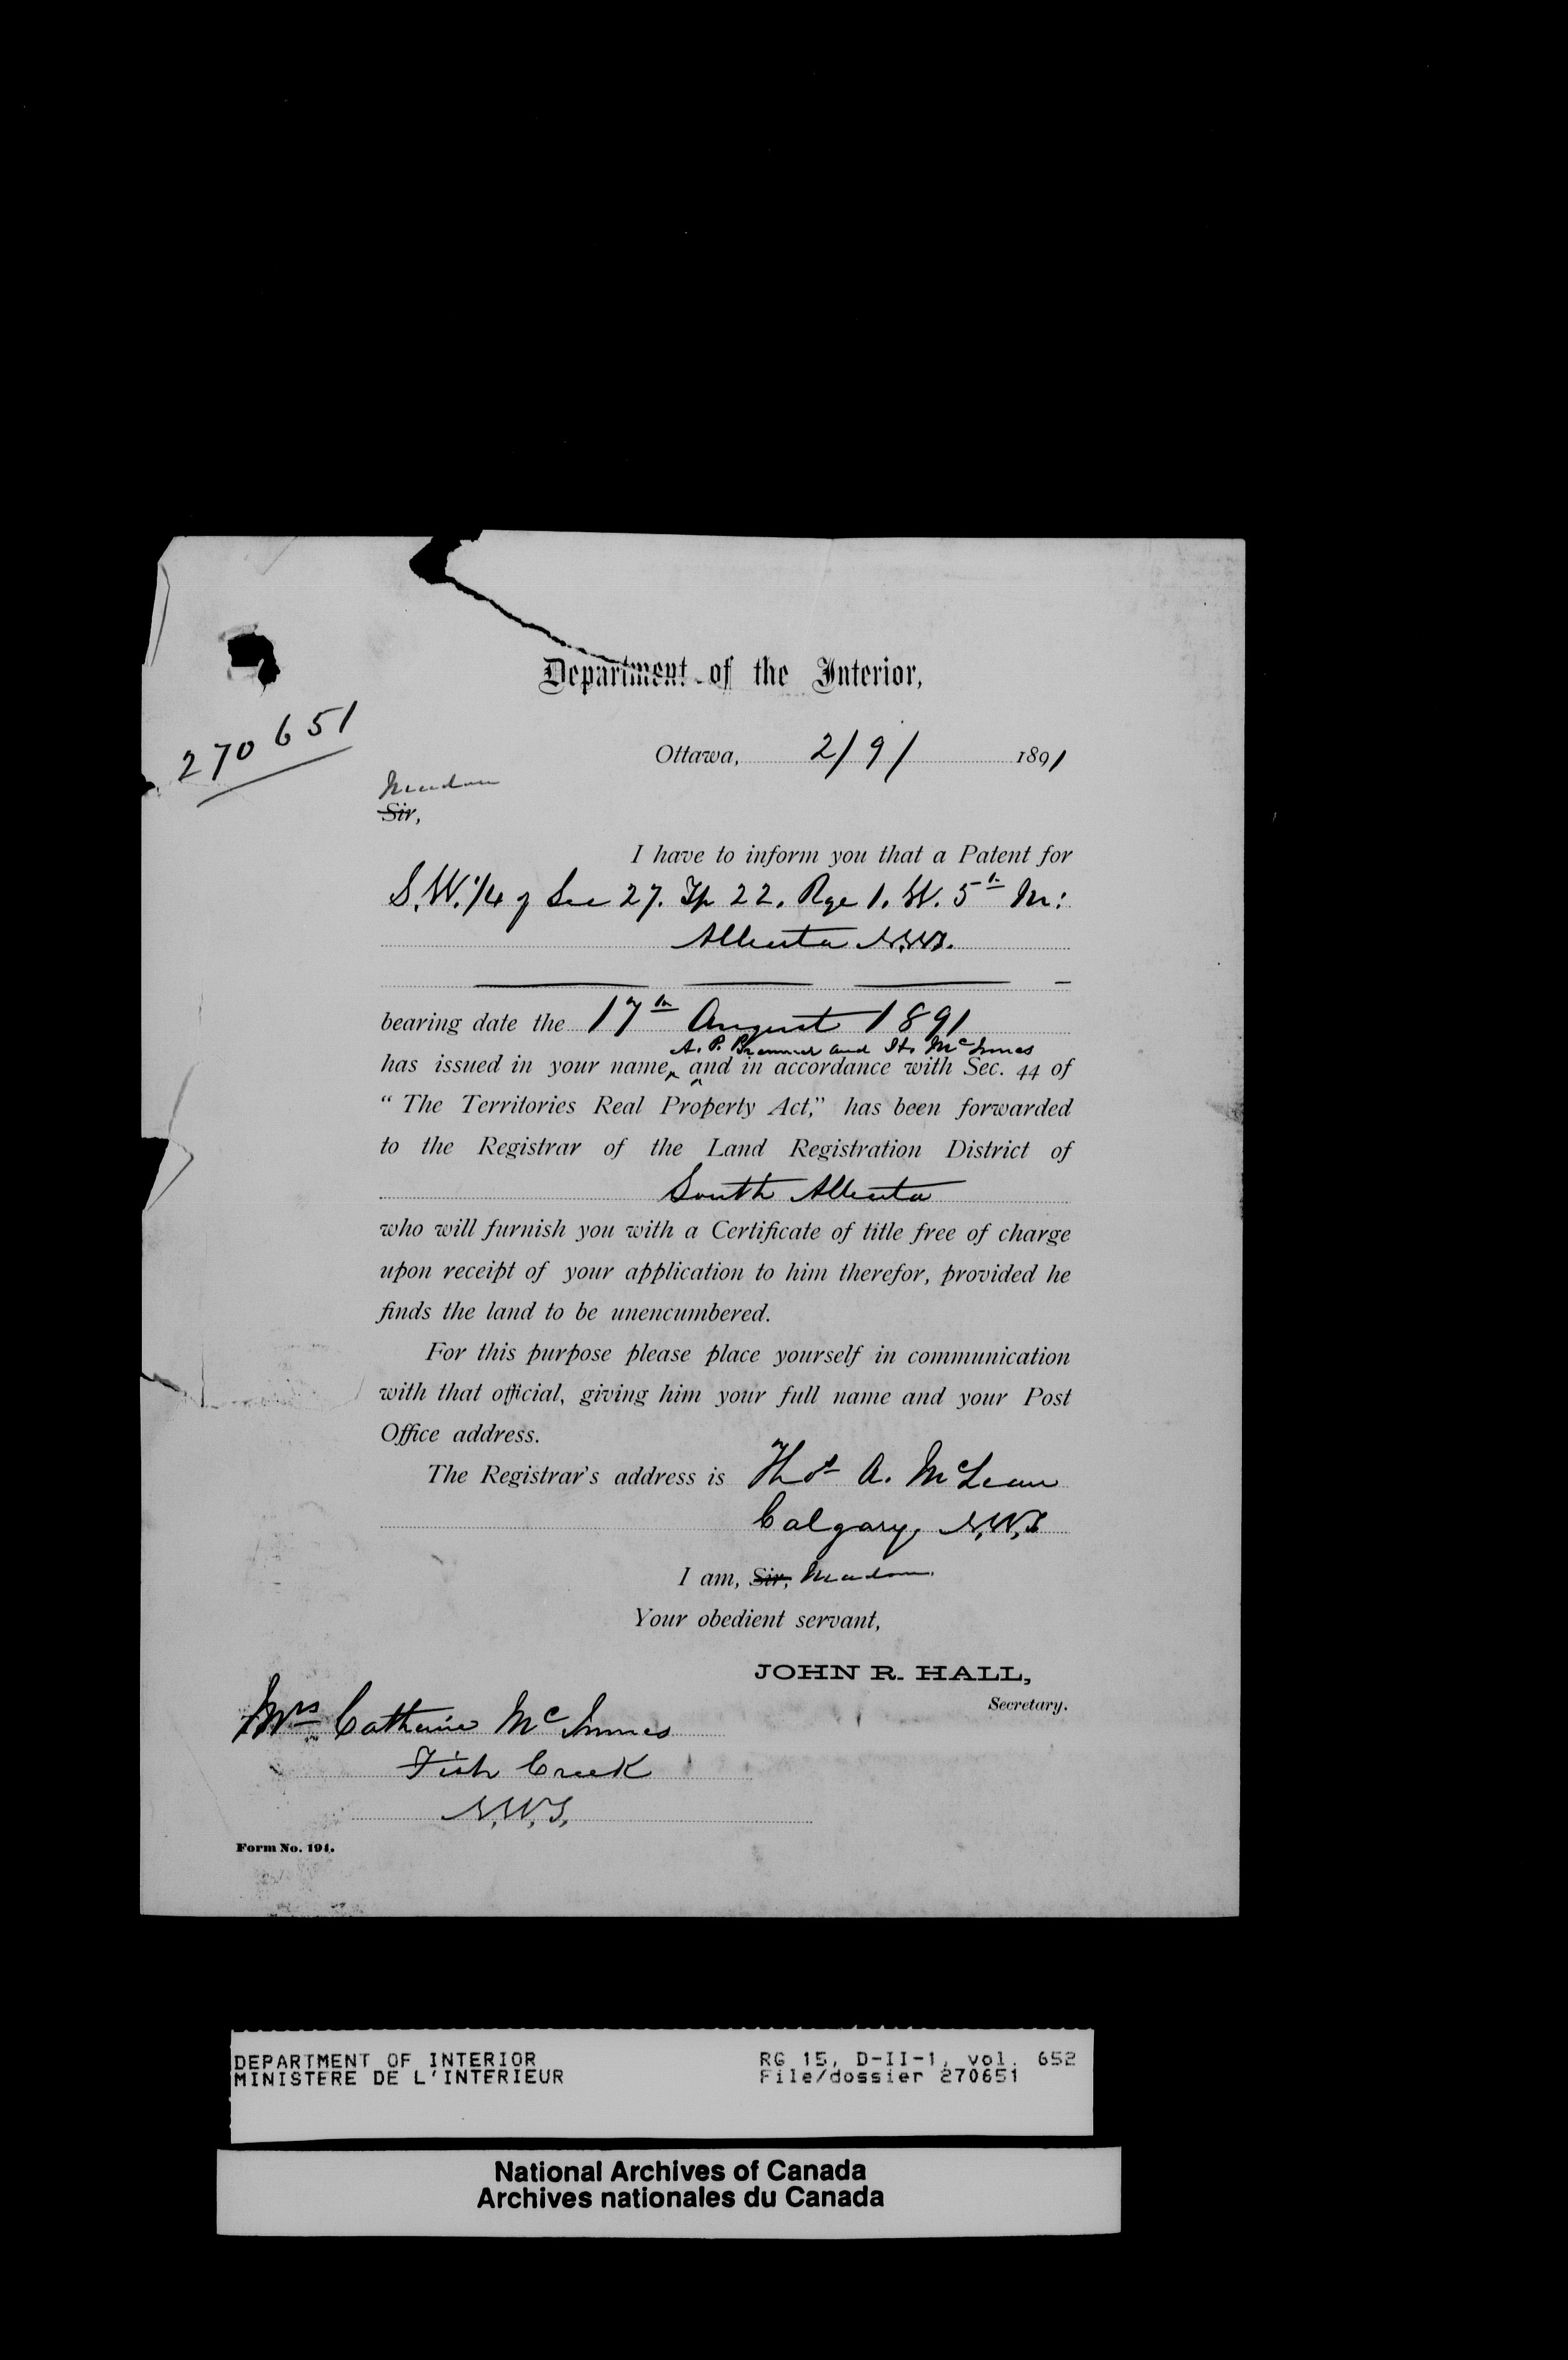 Department of the Interior,
270651
Ottawa, 2/9/ 1891
Madam
Sir,
I have to inform you that a Patent for
S.W. 1/4 of Sec 27. Tp 22. Rge 1. W. 5th M:
Alberta N.W.T.
bearing date the 17th August 1891
A. P. and McInnes
has issued in your name, and in accordance with Sec. 44 of
“The Territories Real Property Act,” has been forwarded
to the Registrar of the Land Registration District of
South Alberta
who will furnish you with a Certificate of title free of charge
upon receipt of your application to him therefor, provided he
finds the land to be unencumbered.
For this purpose please place yourself in communication
with that official, giving him your full name and your Post
Office address.
The Registrar's address is Thos A. McLean
Calgary, N.W.T
I am, Sir, Madam.
Your obedient servant,
JOHN R. HALL,
Secretary.
Mrs Catherine McInnes
Fish Creek
N.W.T.
Form No. 194.
DEPARTMENT OF INTERIOR RG 15, D-II-1, vol. 652
MINISTERE DE L'INTERIEUR File/dossier 270651
National Archives of Canada
Archives nationales du Canada